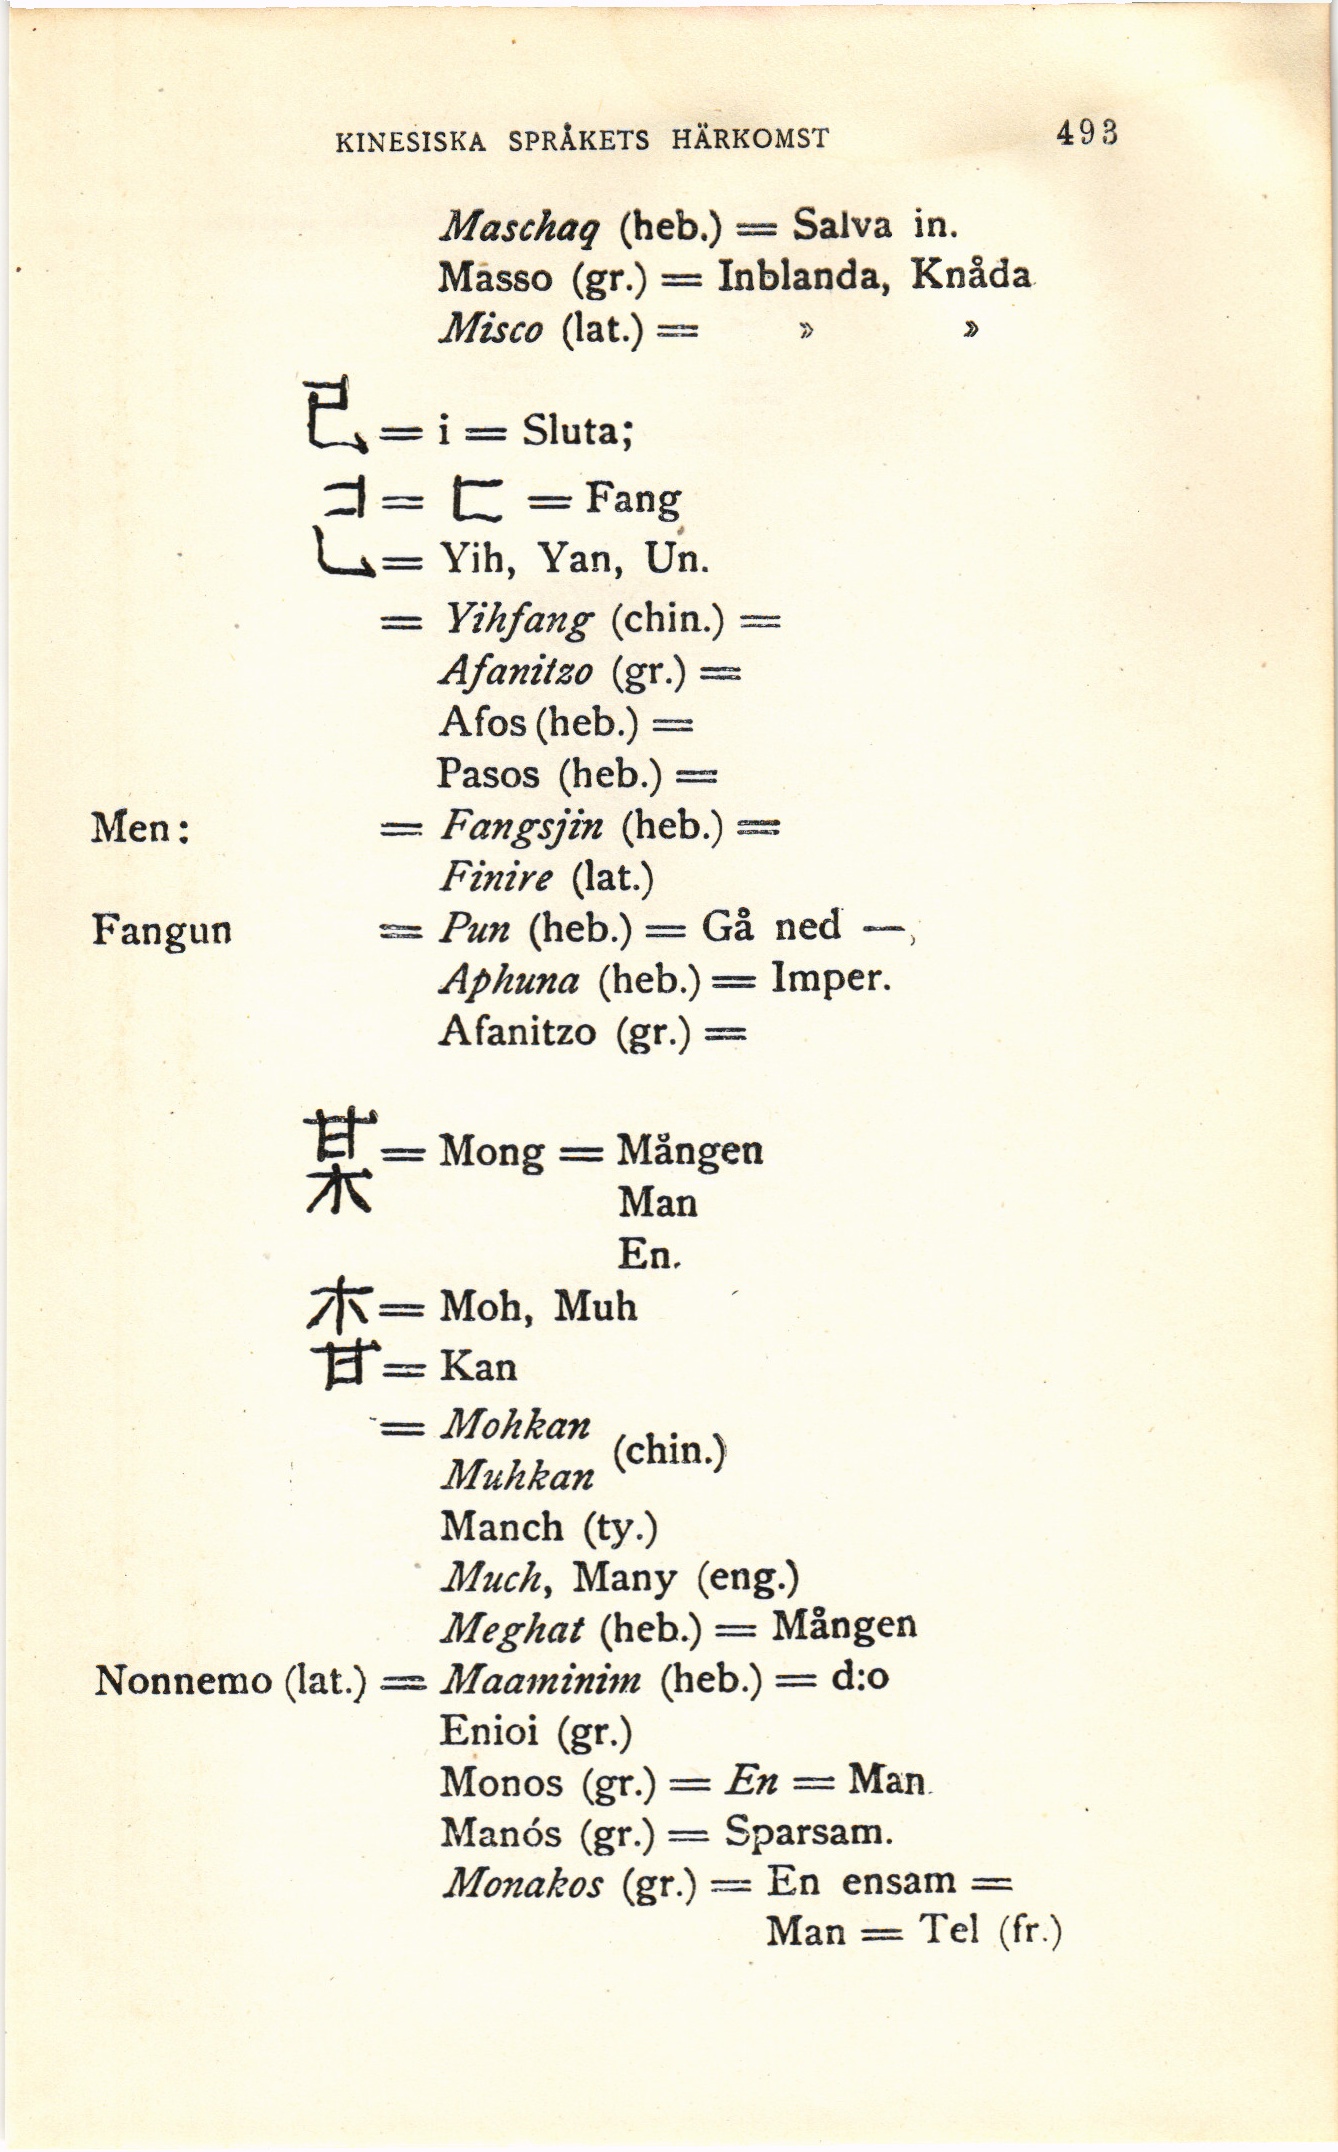 KINESISKA SPRÅKETS HÄRKOMST 493
Maschaq (heb.) = Salva in.
Masso (gr.) = Inblanda, Knåda
Misco (lat.) = » »
已 = i = Sluta;
コ = 匚 = Fang
乚 = Yih, Yan, Un.
= Yihfang (chin.) =
Afanitzo (gr.) =
Afos (heb.) =
Pasos (heb.) =
Men: = Fangsjin (heb.) =
Finire (lat.)
Fangun = Pun (heb.) = Gå ned —,
Aphuna (heb.) = Imper.
Afanitzo (gr.) =
某 = Mong = Mången
Man
En.
木 = Moh, Muh
甘 = Kan
= Mohkan
(chin.)
Muhkan
Manch (ty.)
Much, Many (eng.)
Meghat (heb.) = Mången
Nonnemo (lat.) = Maaminim (heb.) = d:o
Enioi (gr.)
Monos (gr.) = En = Man
Manós (gr.) = Sparsam.
Monakos (gr.) = En ensam =
Man = Tel (fr.)